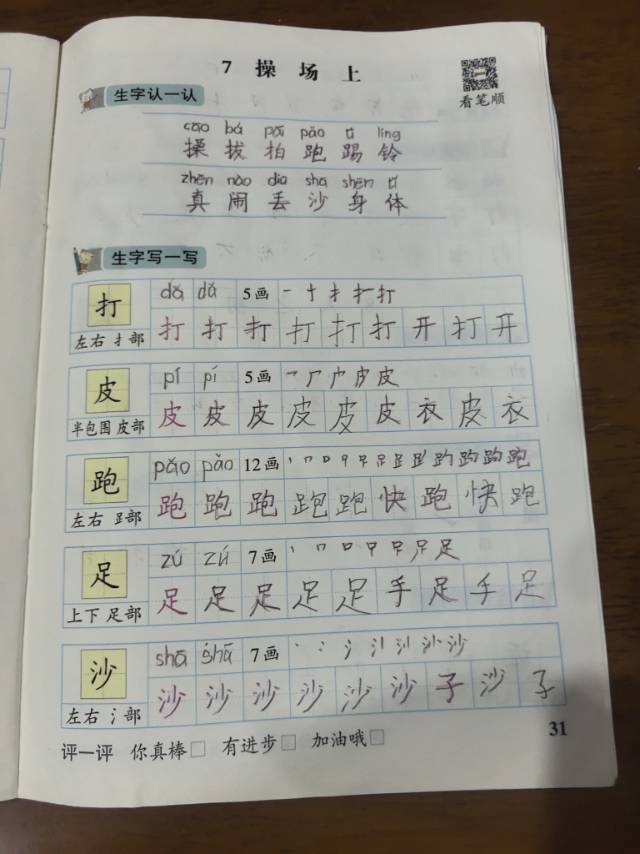 7 操场上
看笔顺
生字认一认
cāo bá pāi pǎo tī líng
操 拔 拍 跑 踢 铃
zhēn nào diū shā shēn tǐ
真 闹 丢 沙 身 体
生字写一写
打 dǎ dǎ 5画 一 十 扌 扌 打
左右 扌部 打 打 打 打 打 打 开 打 开
皮 pí pí 5画 皮
半包围 皮部 皮 皮 皮 皮 皮 皮 衣 皮 衣
跑 pǎo pǎo 12画 跑
左右 𧾷部 跑 跑 跑 跑 跑 快 跑 快 跑
足 zú zú 7画 足
上下 足部 足 足 足 足 足 手 足 手 足
沙 shā shā 7画 沙
左右 氵部 沙 沙 沙 沙 沙 沙 子 沙 子
评一评 你真棒 有进步 加油哦
31